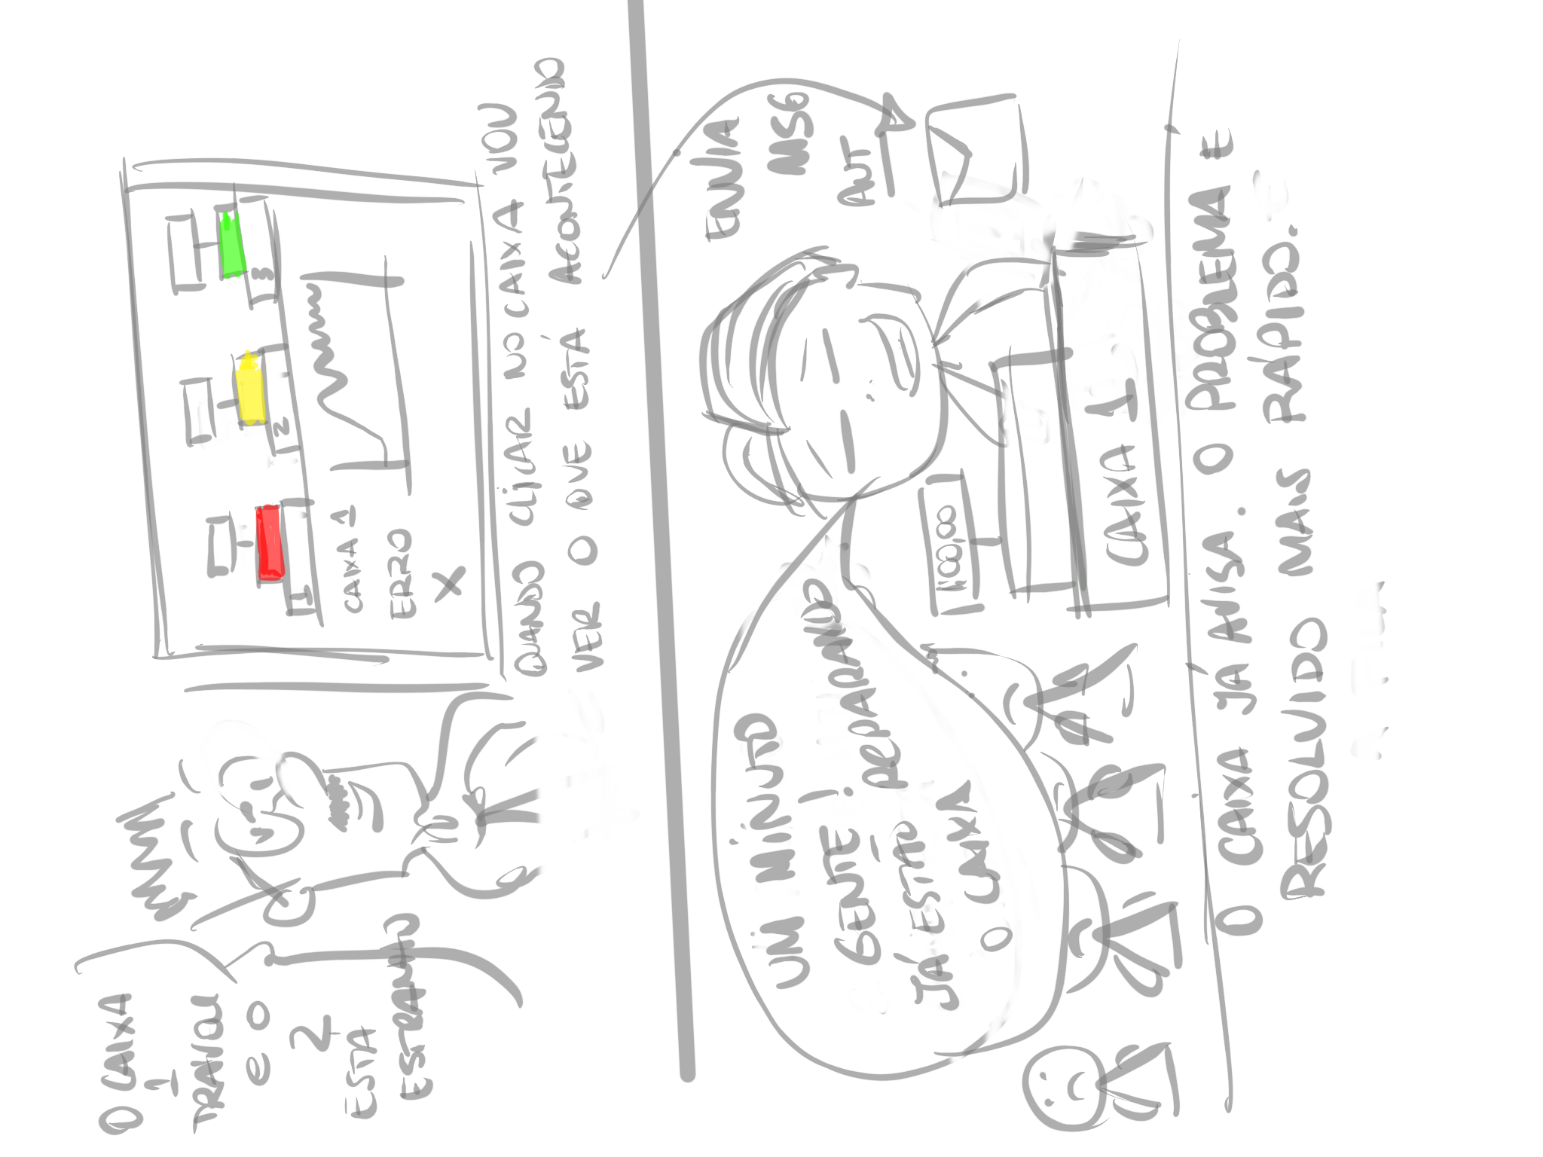 O CAIXA
1
TRAVOU
e O
2
ESTA
ESTRANHO
3
2
1
CAIXA 1
ERRO
X
QUANDO CLICAR NO CAIXA VOU
VER O QUE ESTÁ ACONTECENDO
ENVIA
MSG
AUT
UM MINUTO
GENTE!
JÁ ESTÃO REPARANDO
O CAIXA
100,00
CAIXA 1
O CAIXA JÁ AVISA. O PROBLEMA É
RESOLVIDO MAIS RÁPIDO.